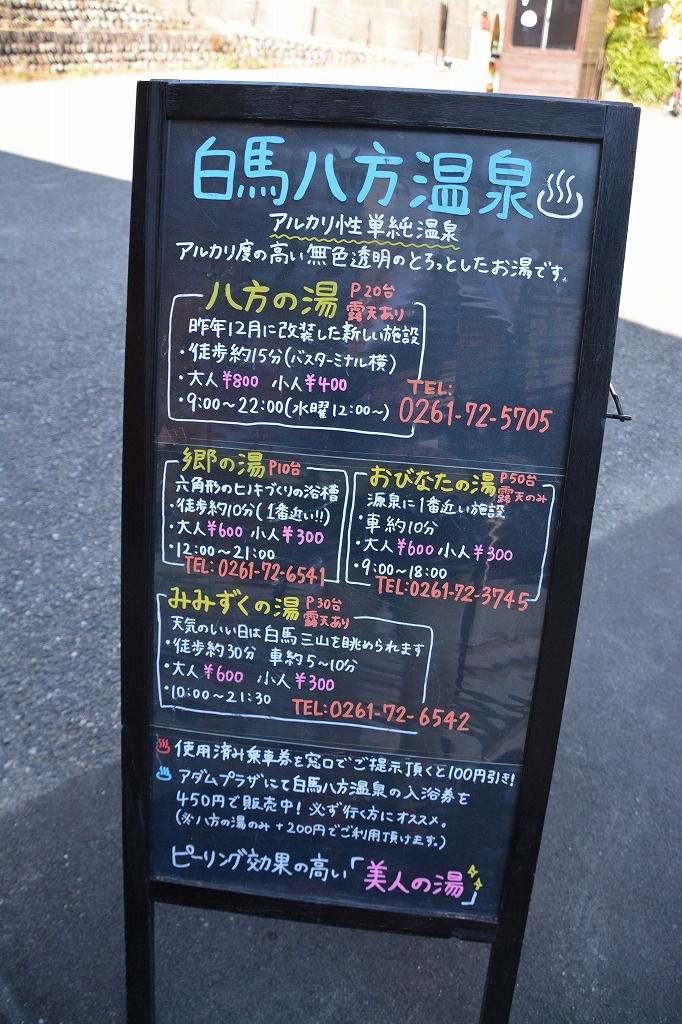 白馬八方温泉♨
アルカリ性単純温泉
アルカリ度の高い無色透明のとろっとしたお湯です。
八方の湯 P20台 露天あり
昨年12月に改装した新しい施設
・徒歩約15分(バスターミナル横)
・大人¥800 小人¥400
・9:00〜22:00(水曜12:00〜)
TEL:
0261-72-5705
郷の湯 P10台
六角形のヒノキづくりの浴槽
・徒歩約10分(1番近い!!)
・大人¥600 小人¥300
・12:00〜21:00
TEL:0261-72-6541
おびなたの湯 P50台 露天のみ
源泉に1番近い施設
・車約10分
・大人¥600 小人¥300
・9:00〜18:00
TEL:0261-72-3745
みみずくの湯 P30台 露天あり
天気のいい日は白馬三山を眺められます
・徒歩約30分 車約5〜10分
・大人¥600 小人¥300
・10:00〜21:30
TEL:0261-72-6542
♨使用済み乗車券を窓口でご提示頂くと100円引き!
♨アダムプラザにて白馬八方温泉の入浴券を
450円で販売中!必ず行く方にオススメ。
(※八方の湯のみ+200円でご利用頂けます。)
ピーリング効果の高い「美人の湯」